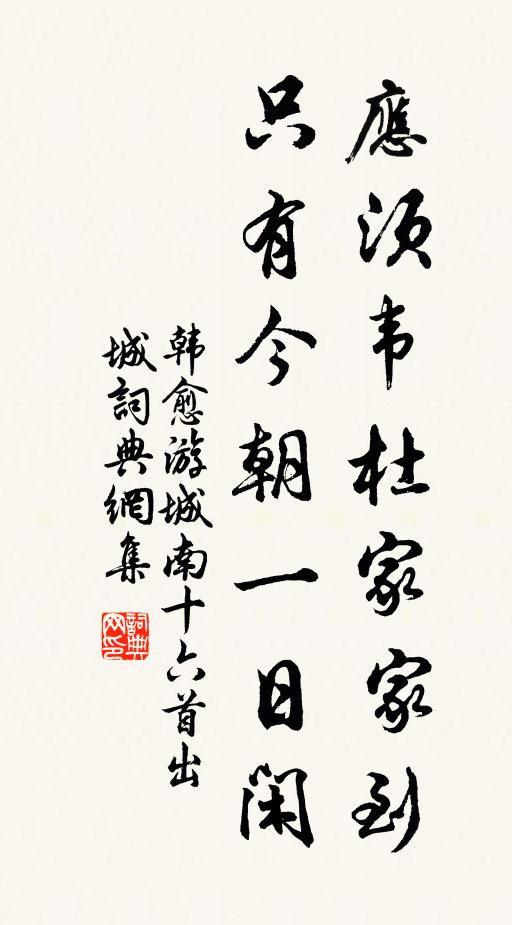 應須韦杜家家到
只有今朝一日闲
韩愈游城南十六首出
城詞典網集
詞典
网印